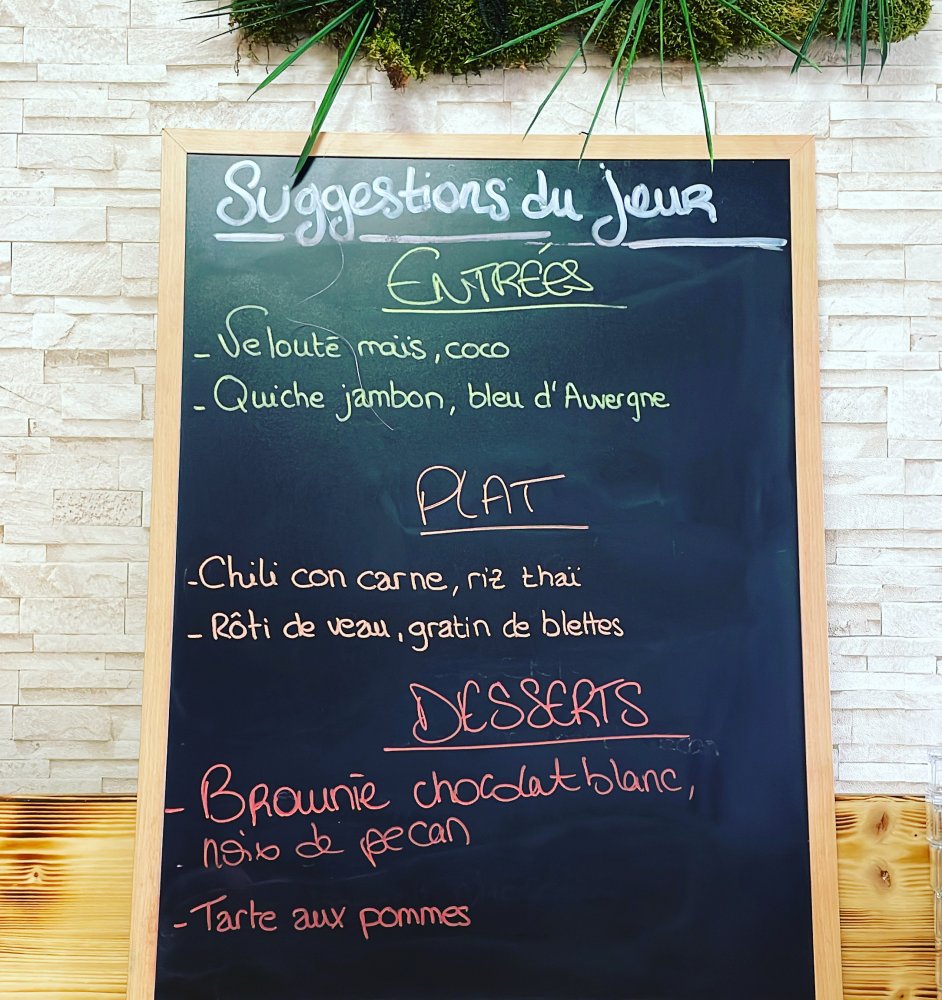 Suggestions du jour
ENTRÉES
- Velouté maïs, coco
- Quiche jambon, bleu d'Auvergne
PLAT
- Chili con carne, riz thaï
- Rôti de veau, gratin de blettes
DESSERTS
- Brownie chocolat blanc,
noix de pecan
- Tarte aux pommes